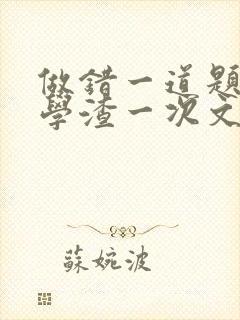 做錯一道題
學渣一次文
蘇婉波